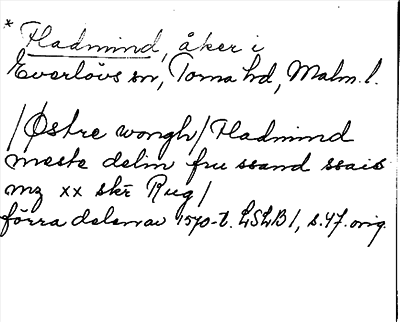 * Fladmind, åker i
Everlövs sn, Torna hd, Malm. l.
/Østre wongh/ Fladmind
meste delin fru ssand ssais
mz xx skr Rug/
förra delen av 1570-t. LSLB1, s. 47. orig.